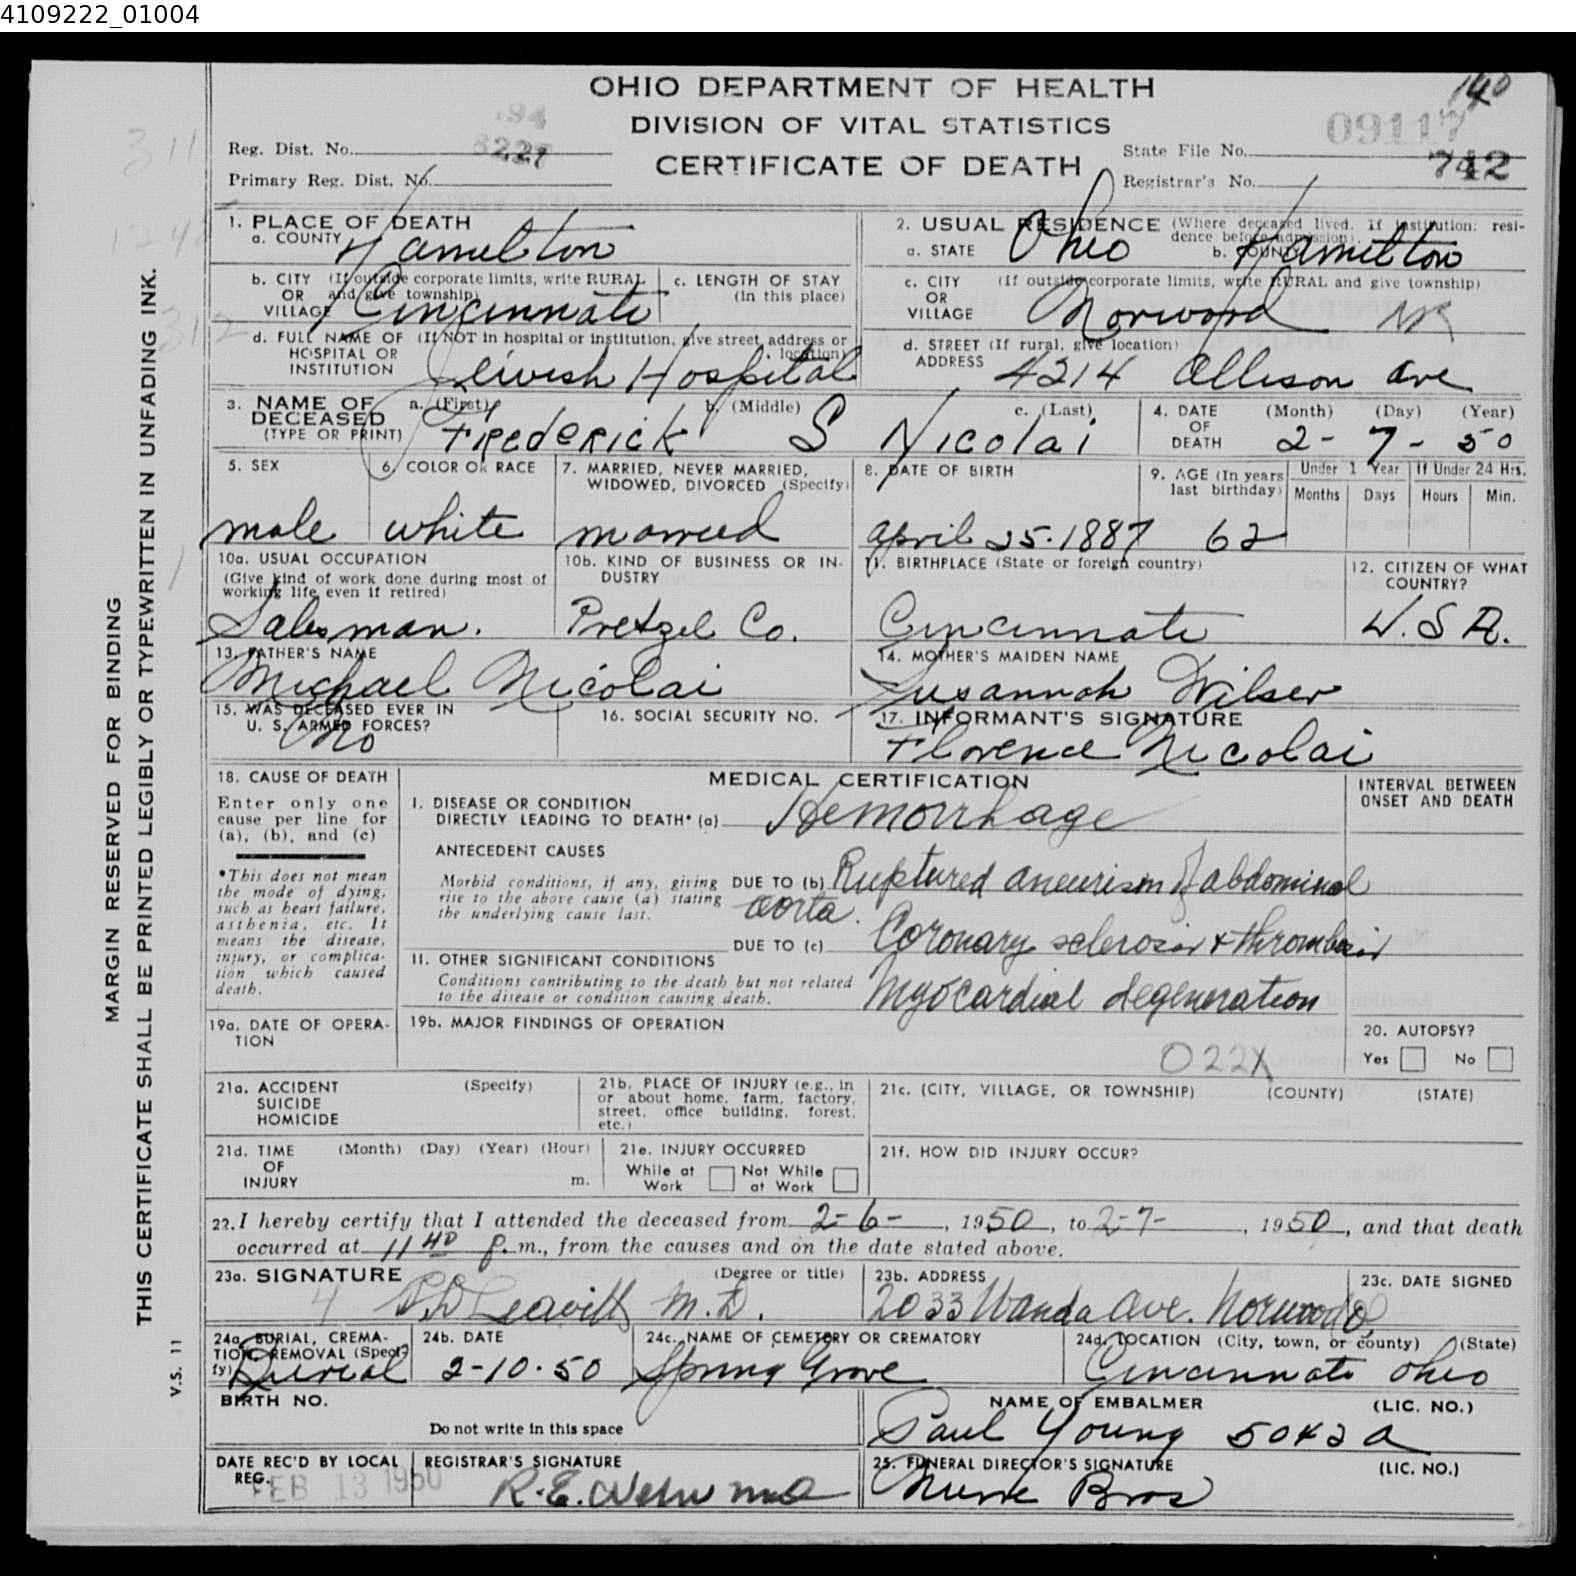 4109222_01004
OHIO DEPARTMENT OF HEALTH
DIVISION OF VITAL STATISTICS
CERTIFICATE OF DEATH
140
Reg. Dist. No.
Primary Reg. Dist. No.
State File No. 09117
Registrar's No. 742
MARGIN RESERVED FOR BINDING
THIS CERTIFICATE SHALL BE PRINTED LEGIBLY OR TYPEWRITTEN IN UNFADING INK.
V.S. 11
1. PLACE OF DEATH
a. COUNTY Hamilton
2. USUAL RESIDENCE (Where deceased lived. If institution: residence before admission).
a. STATE Ohio b. COUNTY Hamilton
b. CITY (If outside corporate limits, write RURAL and give township) OR VILLAGE Cincinnati
c. LENGTH OF STAY (in this place)
c. CITY (If outside corporate limits, write RURAL and give township) OR VILLAGE Norwood
d. FULL NAME OF (If NOT in hospital or institution, give street address or location) HOSPITAL OR INSTITUTION Jewish Hospital
d. STREET (If rural, give location) ADDRESS 4214 Allison Ave
3. NAME OF DECEASED (TYPE OR PRINT) a. (First) Frederick b. (Middle) S c. (Last) Nicolai
4. DATE OF DEATH (Month) (Day) (Year) 2-7-50
5. SEX male
6. COLOR OR RACE white
7. MARRIED, NEVER MARRIED, WIDOWED, DIVORCED (Specify) married
8. DATE OF BIRTH April 25-1887
9. AGE (In years last birthday) 62
Under 1 Year Months Days
If Under 24 Hrs. Hours Min.
10a. USUAL OCCUPATION (Give kind of work done during most of working life even if retired) Salesman.
10b. KIND OF BUSINESS OR INDUSTRY Pretzel Co.
11. BIRTHPLACE (State or foreign country) Cincinnati
12. CITIZEN OF WHAT COUNTRY? U.S.A.
13. FATHER'S NAME Michael Nicolai
14. MOTHER'S MAIDEN NAME Susannah Wilser
15. WAS DECEASED EVER IN U. S. ARMED FORCES? No
16. SOCIAL SECURITY NO.
17. INFORMANT'S SIGNATURE Florence Nicolai
18. CAUSE OF DEATH
Enter only one cause per line for (a), (b), and (c)
*This does not mean the mode of dying, such as heart failure, asthenia, etc. It means the disease, injury, or complication which caused death.
MEDICAL CERTIFICATION
INTERVAL BETWEEN ONSET AND DEATH
I. DISEASE OR CONDITION DIRECTLY LEADING TO DEATH* (a) Hemorrhage
ANTECEDENT CAUSES
Morbid conditions, if any, giving rise to the above cause (a) stating the underlying cause last.
DUE TO (b) Ruptured aneurism of abdominal aorta.
DUE TO (c) Coronary sclerosis + thrombosis
II. OTHER SIGNIFICANT CONDITIONS
Conditions contributing to the death but not related to the disease or condition causing death.
Myocardial degeneration
19a. DATE OF OPERATION
19b. MAJOR FINDINGS OF OPERATION
022X
20. AUTOPSY?
Yes No
21a. ACCIDENT SUICIDE HOMICIDE (Specify)
21b. PLACE OF INJURY (e.g., in or about home, farm, factory, street, office building, forest, etc.)
21c. (CITY, VILLAGE, OR TOWNSHIP) (COUNTY) (STATE)
21d. TIME OF INJURY (Month) (Day) (Year) (Hour) m.
21e. INJURY OCCURRED
While at Work Not While at Work
21f. HOW DID INJURY OCCUR?
22. I hereby certify that I attended the deceased from 2-6-, 1950, to 2-7-, 1950, and that death
occurred at 11 40 p.m., from the causes and on the date stated above.
23a. SIGNATURE (Degree or title) Leavitt M.D.
23b. ADDRESS 2033 Wanda Ave. Norwood O
23c. DATE SIGNED
24a. BURIAL, CREMATION, REMOVAL (Specify) Burial
24b. DATE 2-10-50
24c. NAME OF CEMETERY OR CREMATORY Spring Grove
24d. LOCATION (City, town, or county) (State) Cincinnati Ohio
BIRTH NO.
Do not write in this space
NAME OF EMBALMER (LIC. NO.)
Paul Young 5042A
DATE REC'D BY LOCAL REG. FEB 13 1950
REGISTRAR'S SIGNATURE
R.E.
25. FUNERAL DIRECTOR'S SIGNATURE (LIC. NO.)
Bros